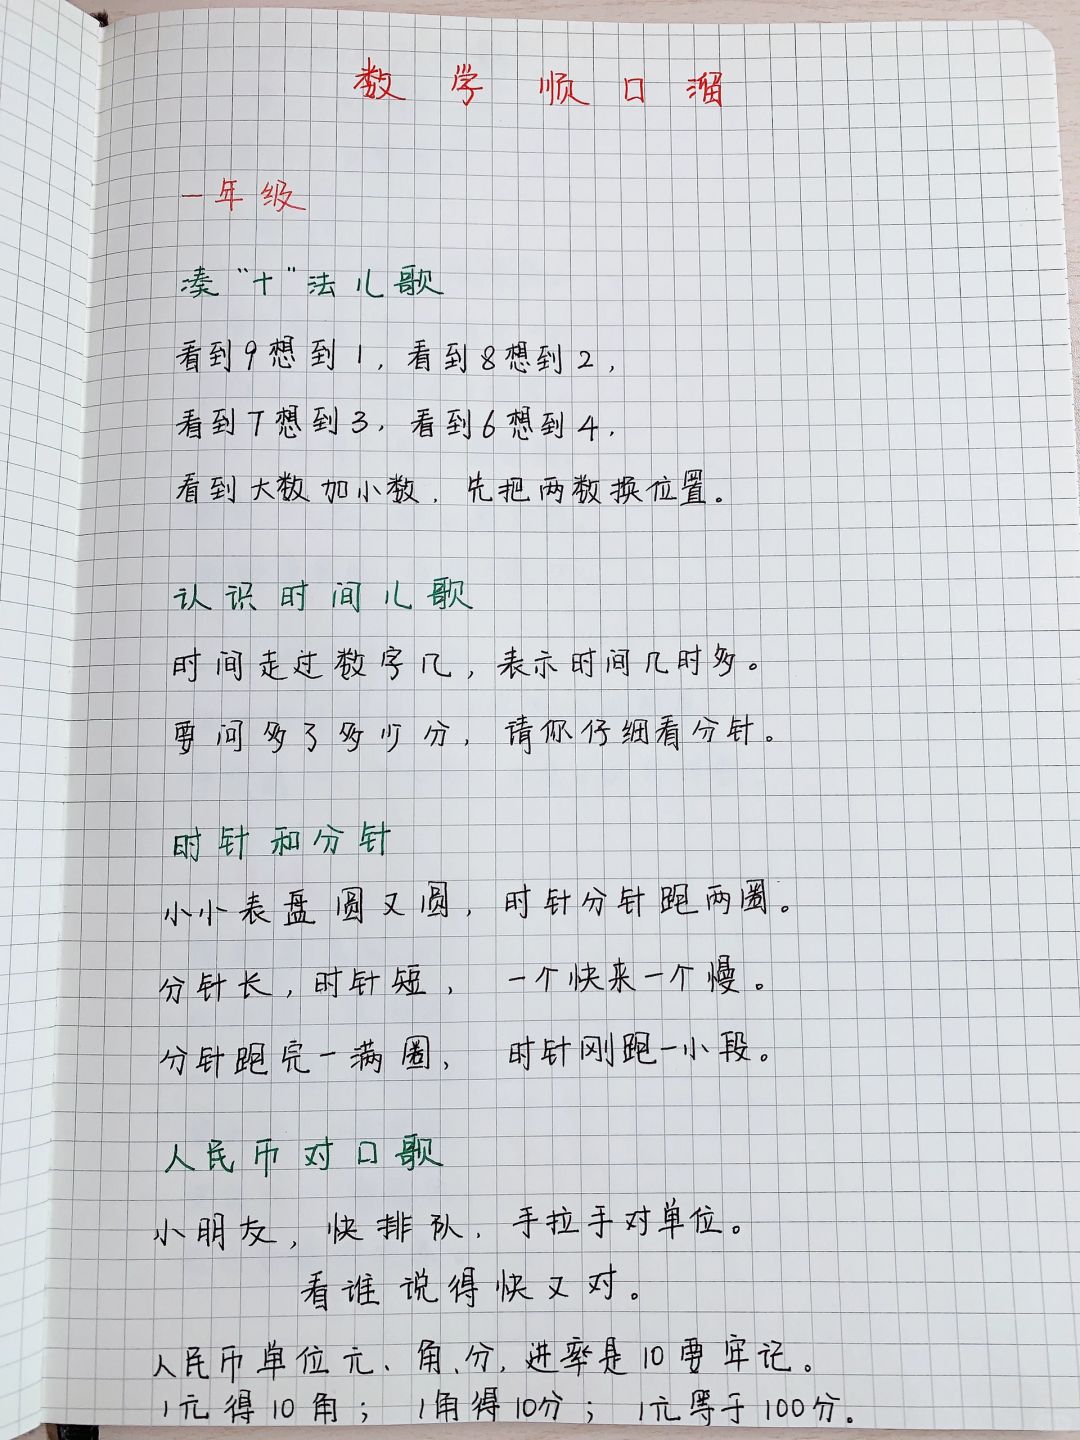 数学顺口溜
一年级
凑“十”法儿歌
看到9想到1，看到8想到2，
看到7想到3，看到6想到4，
看到大数加小数，先把两数换位置。
认识时间儿歌
时间走过数字几，表示时间几时多。
要问多了多少分，请你仔细看分针。
时针和分针
小小表盘圆又圆，时针分针跑两圈。
分针长，时针短，一个快来一个慢。
分针跑完一满圈，时针刚跑一小段。
人民币对口歌
小朋友，快排队，手拉手对单位。
看谁说得快又对。
人民币单位元、角、分，进率是10要牢记。
1元得10角；1角得10分；1元等于100分。